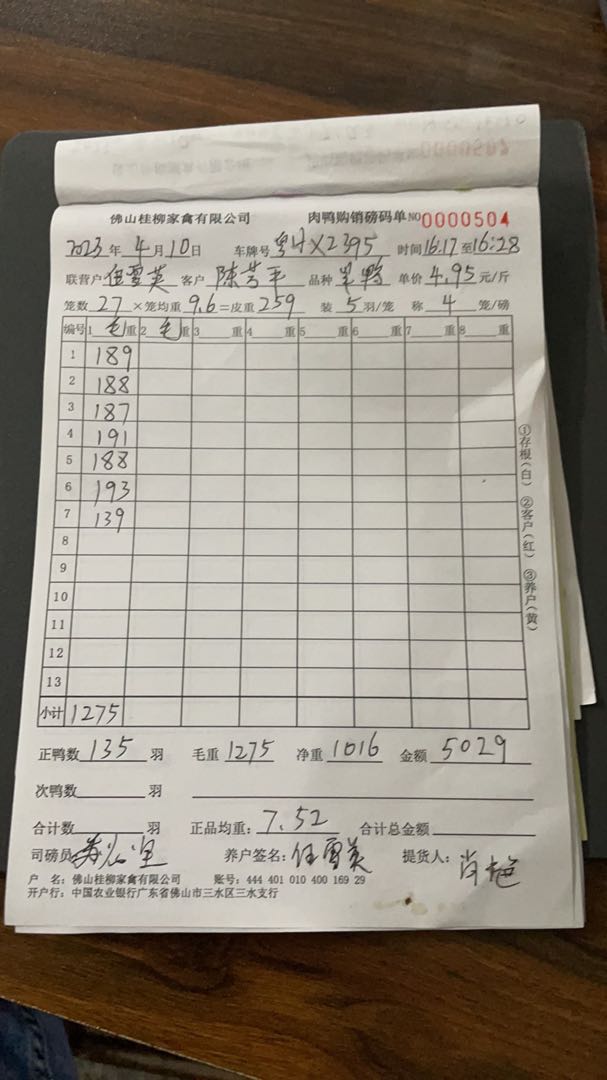 佛山桂柳家禽有限公司 肉鸭购销磅码单 NO 0000504
2023年 4月10日 车牌号 粤HX2395 时间 16:17至16:28
联营户 伍雪英 客户 陈芳平 品种 单价 4.95 元/斤
笼数 27 ×笼均重 9.6 =皮重 259 装 5 羽/笼 称 4 笼/磅
编号 1 毛 重 2 毛 重 3 重 4 重 5 重 6 重 7 重 8 重
1 189
2 188
3 187
4 191
5 188
6 193
7 139
8
9
10
11
12
13
小计 1275
①存根(白) ②客户(红) ③养户(黄)
正鸭数 135 羽 毛重 1275 净重 1016 金额 5029
次鸭数 羽
合计数 羽 正品均重: 7.52 合计总金额
司磅员 养户签名: 伍雪英 提货人:
户 名: 佛山桂柳家禽有限公司 账号: 444 401 010 400 169 29
开户行: 中国农业银行广东省佛山市三水区三水支行